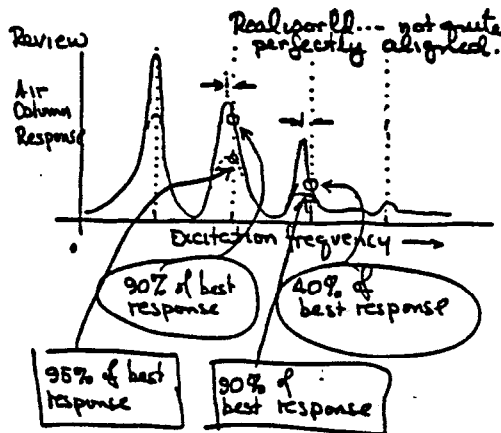 Review
Real world.... not quite
perfectly aligned.
Air
Column
Response
Excitation frequency
90% of best
response
40% of
best response
95% of best
response
90% of
best response